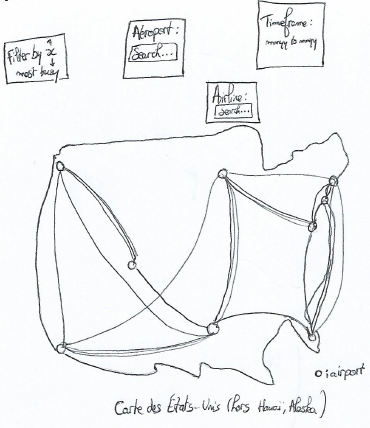 Filter by x
most busy
Aéroport:
Search...
Timeframe:
mmyy to mmyy
Airline:
search...
o : airport
Carte des États-Unis (hors Hawaï, Alaska)